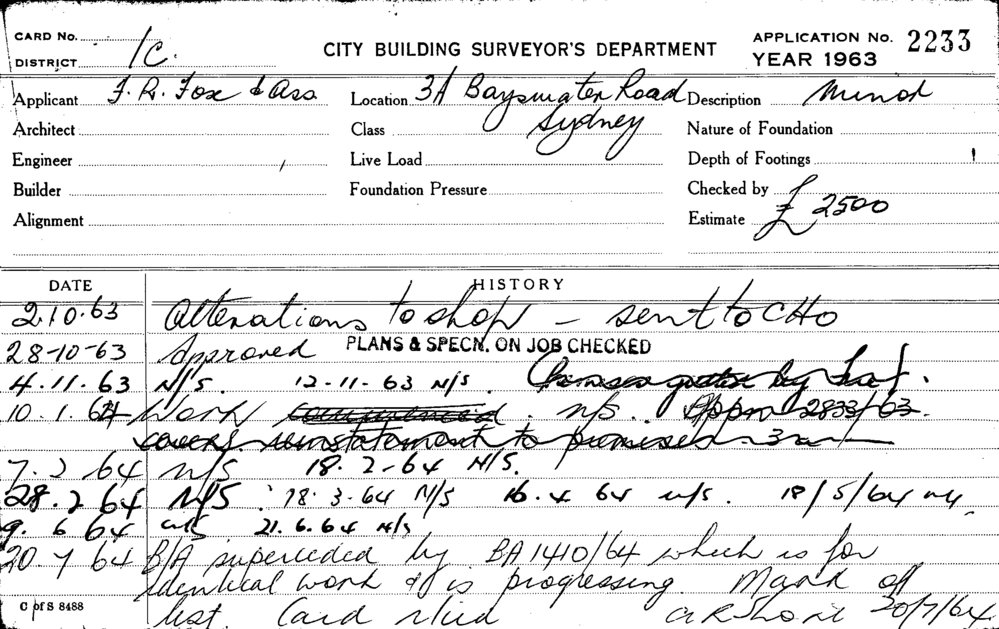 CARD No.
DISTRICT 1C.
CITY BUILDING SURVEYOR'S DEPARTMENT
APPLICATION No. 2233
YEAR 1963
Applicant F. R. Fox & Ass
Location 3A Bayswater Road
Sydney
Description Minor
Architect
Class
Nature of Foundation
Engineer
Live Load
Depth of Footings
Builder
Foundation Pressure
Checked by
Estimate £ 2500
Alignment
DATE HISTORY
2.10.63 Alterations to shop – sent to CHO
28-10-63 Approved PLANS & SPECN. ON JOB CHECKED
4.11.63 N/S. 12-11-63 N/S Premises gutted by
10.1.64 Work commenced. n/s. Appn 2833/63.
covers reinstatement to premises
7.2.64 n/S 18.2-64 N/S.
28.2.64 N/S. 18.3.64 N/S 16.4 64 n/s. 18/5/64
9.6 64 21.6.64 N/S
20.7 64 B/A superceded by BA 1410/64 which is for
identical work & is progressing. Mark off
list. Card
20/7/64.
C of S 8488